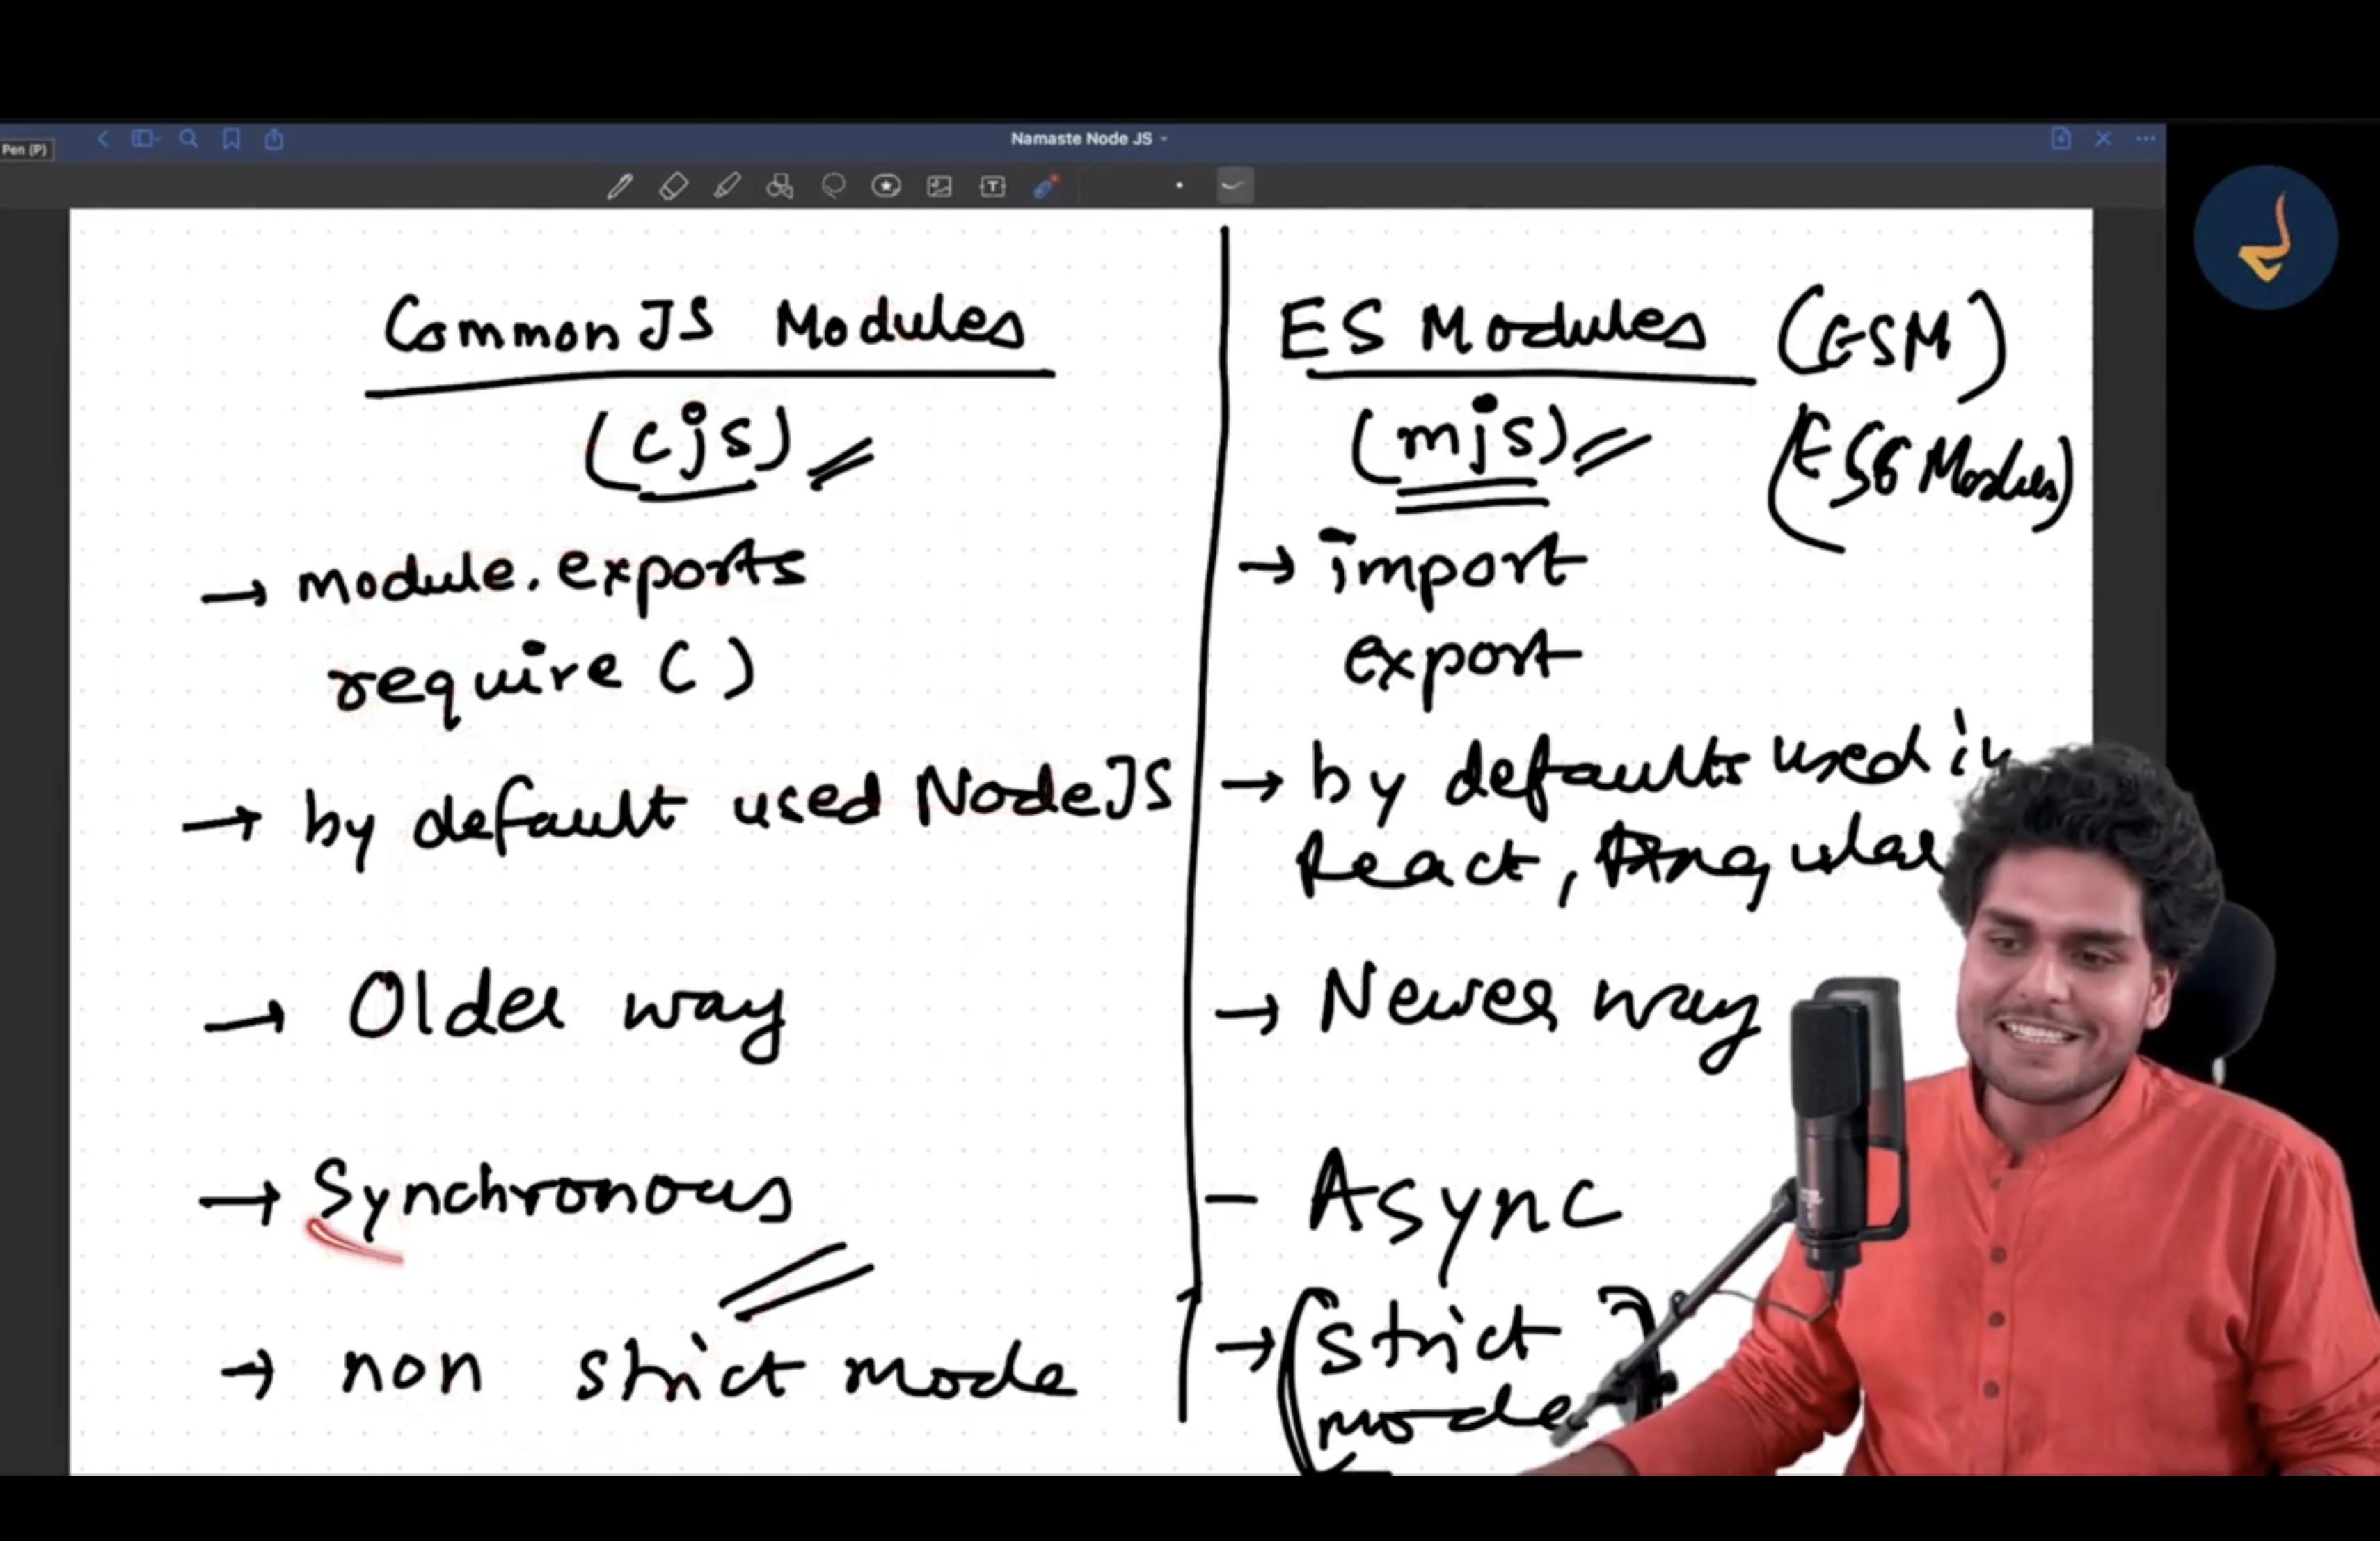 Namaste Node JS
Pen (P)
CommonJS Modules
(cjs)
→ module.exports
require ( )
→ by default used NodeJS
→ Older way
→ Synchronous
→ non strict mode
ES Modules (ESM)
(mjs) (ES6 Modules)
→ import
export
→ by defaults used in
React, Angular
→ Newer way
- Async
→ (strict
mode)